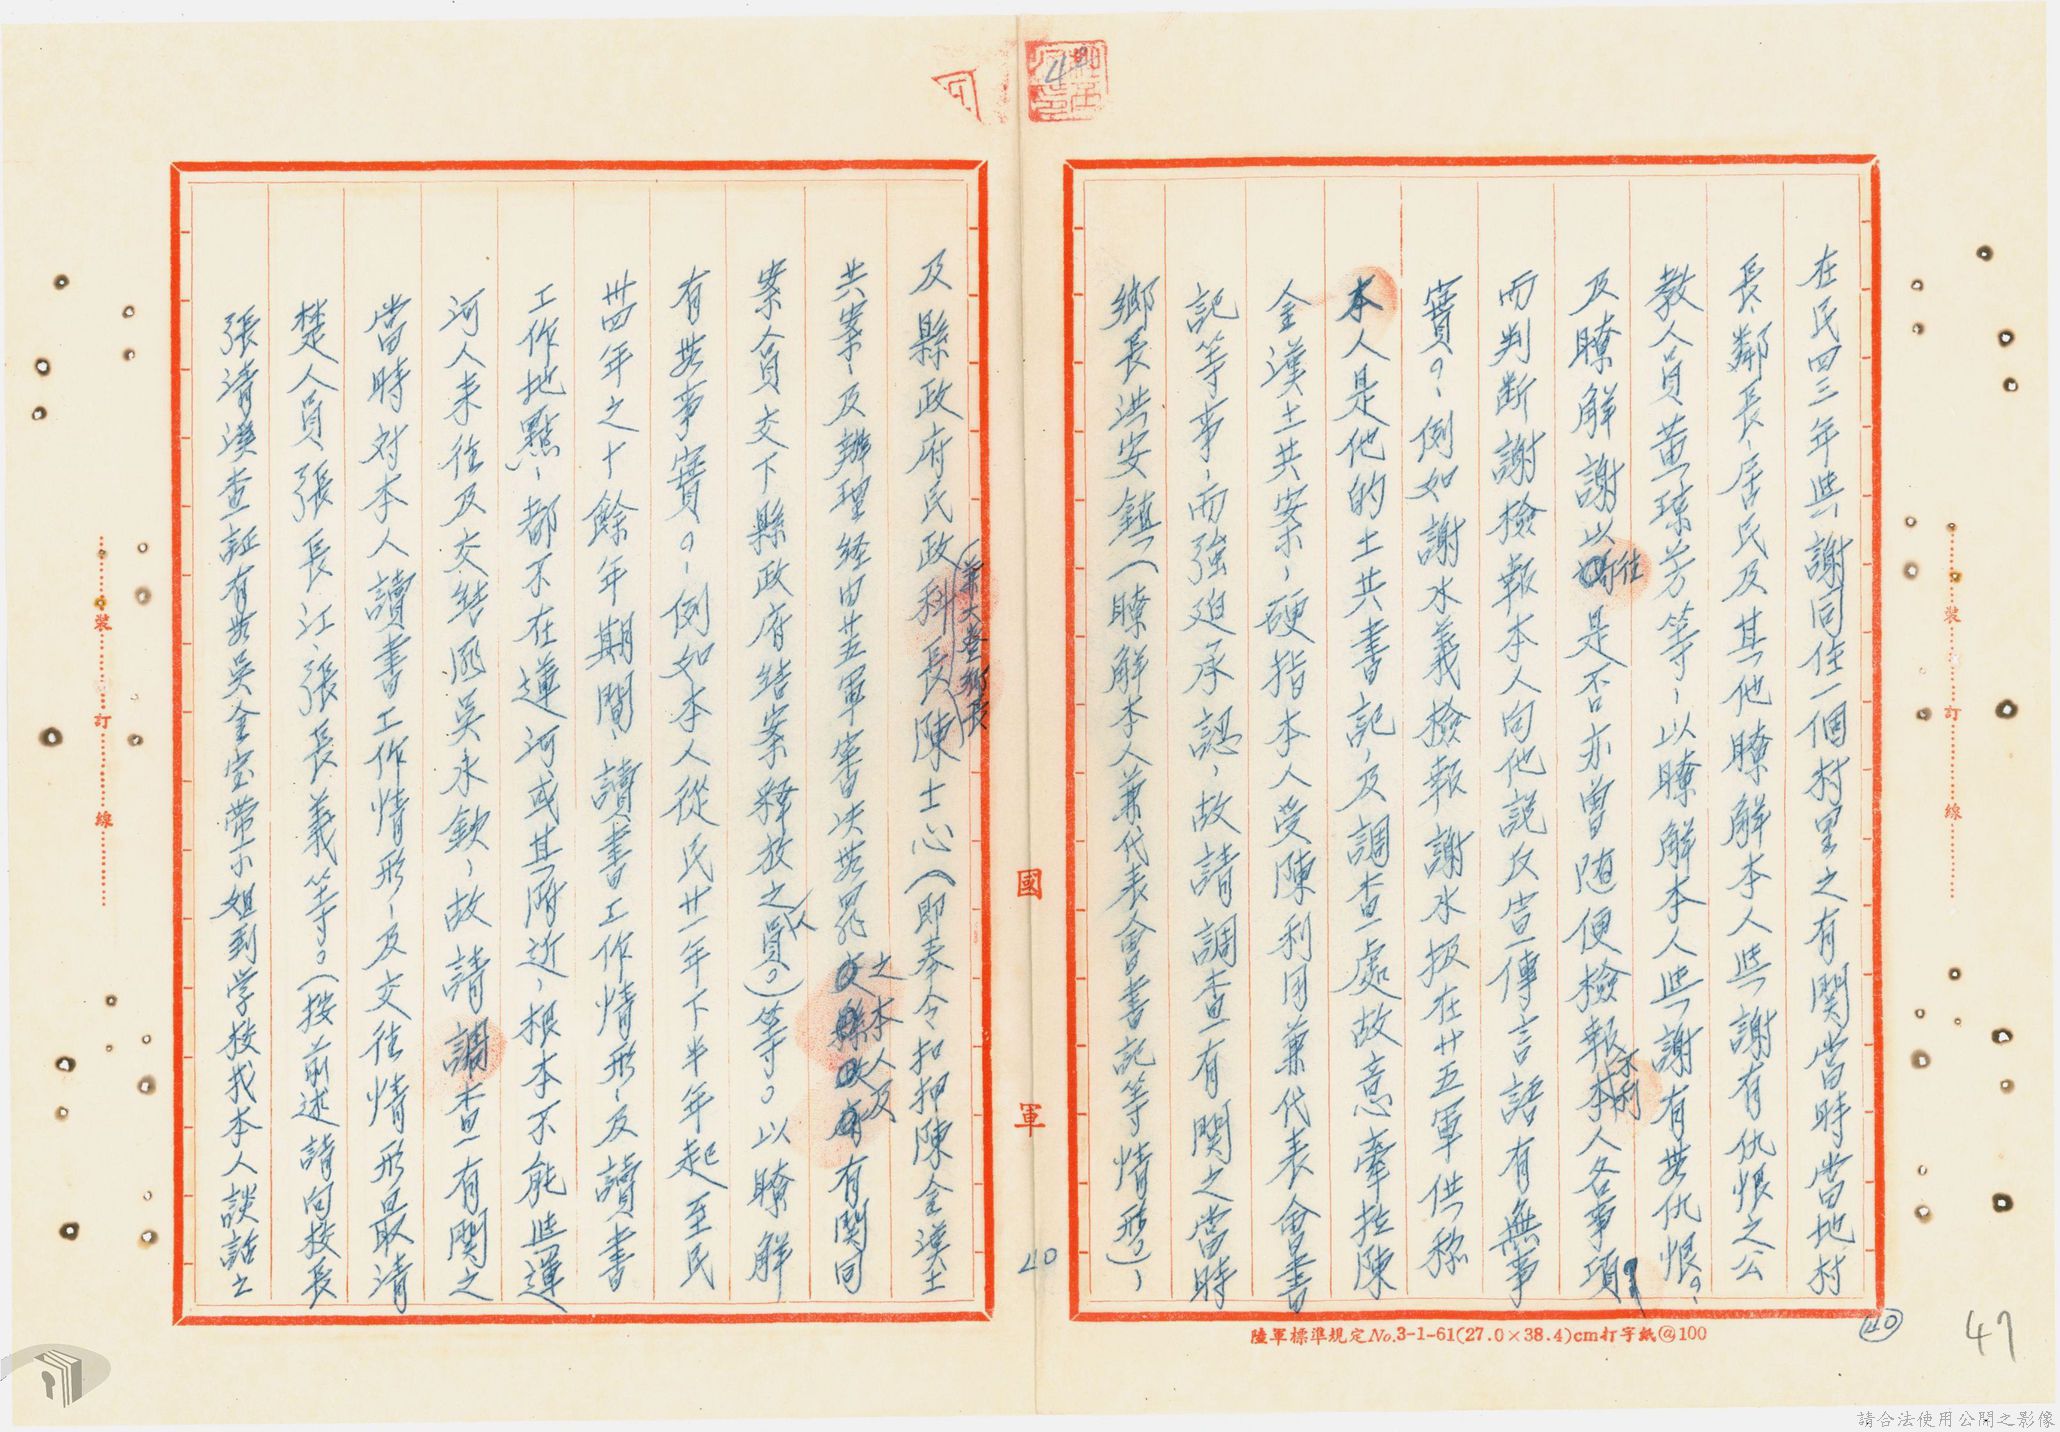 在民四三年與謝同住一個村里之有関當時當地村
長、鄰長、居民及其他瞭解本人與謝有仇恨之公
教人員黃瓊芳等、以瞭解本人與謝有無仇恨。、
及瞭解謝以往是否亦曾随便檢報不利本人各事項，
而判断謝檢報本人向他説反宣傳言語有無事
實。、例如謝水義檢報謝水扱在廿五軍供称
本人是他的土共書記、及調查處故意牽拉陳
金漢土共案、硬指本人受陳利用兼代表會書
記等事、而強迫承認、故請調查有関之當時
鄉長洪安鎮(瞭解本人兼代表會書記等情形。)、
及縣政府民政科長(兼大登鄉長)陳士心(即奉令扣押陳金漢土
共案、及辦理経由廿五軍審決無罪之本人及有関同
案人員交下縣政府結案釋放之人員。)等。以瞭解
有無事實。、例如本人從民廿一年下半年起至民
卅四年之十餘年期間、讀書工作情形、及讀書
工作地點、都不在蓮河或其附近、根本不能與蓮
河人来往及交結匪吳永欽、故請調查有関之
當時対本人讀書工作情形、及交往情形最清
楚人員張長江、張長義等。(按前述請向校長
張清漢查証有無吳金宝帶小姐到学校找本人談話之
國
軍
40
40
47
裝
訂
線
裝
訂
線
陸軍標準規定No.3-1-61(27.0×38.4)cm打字紙@100
請合法使用公開之影像